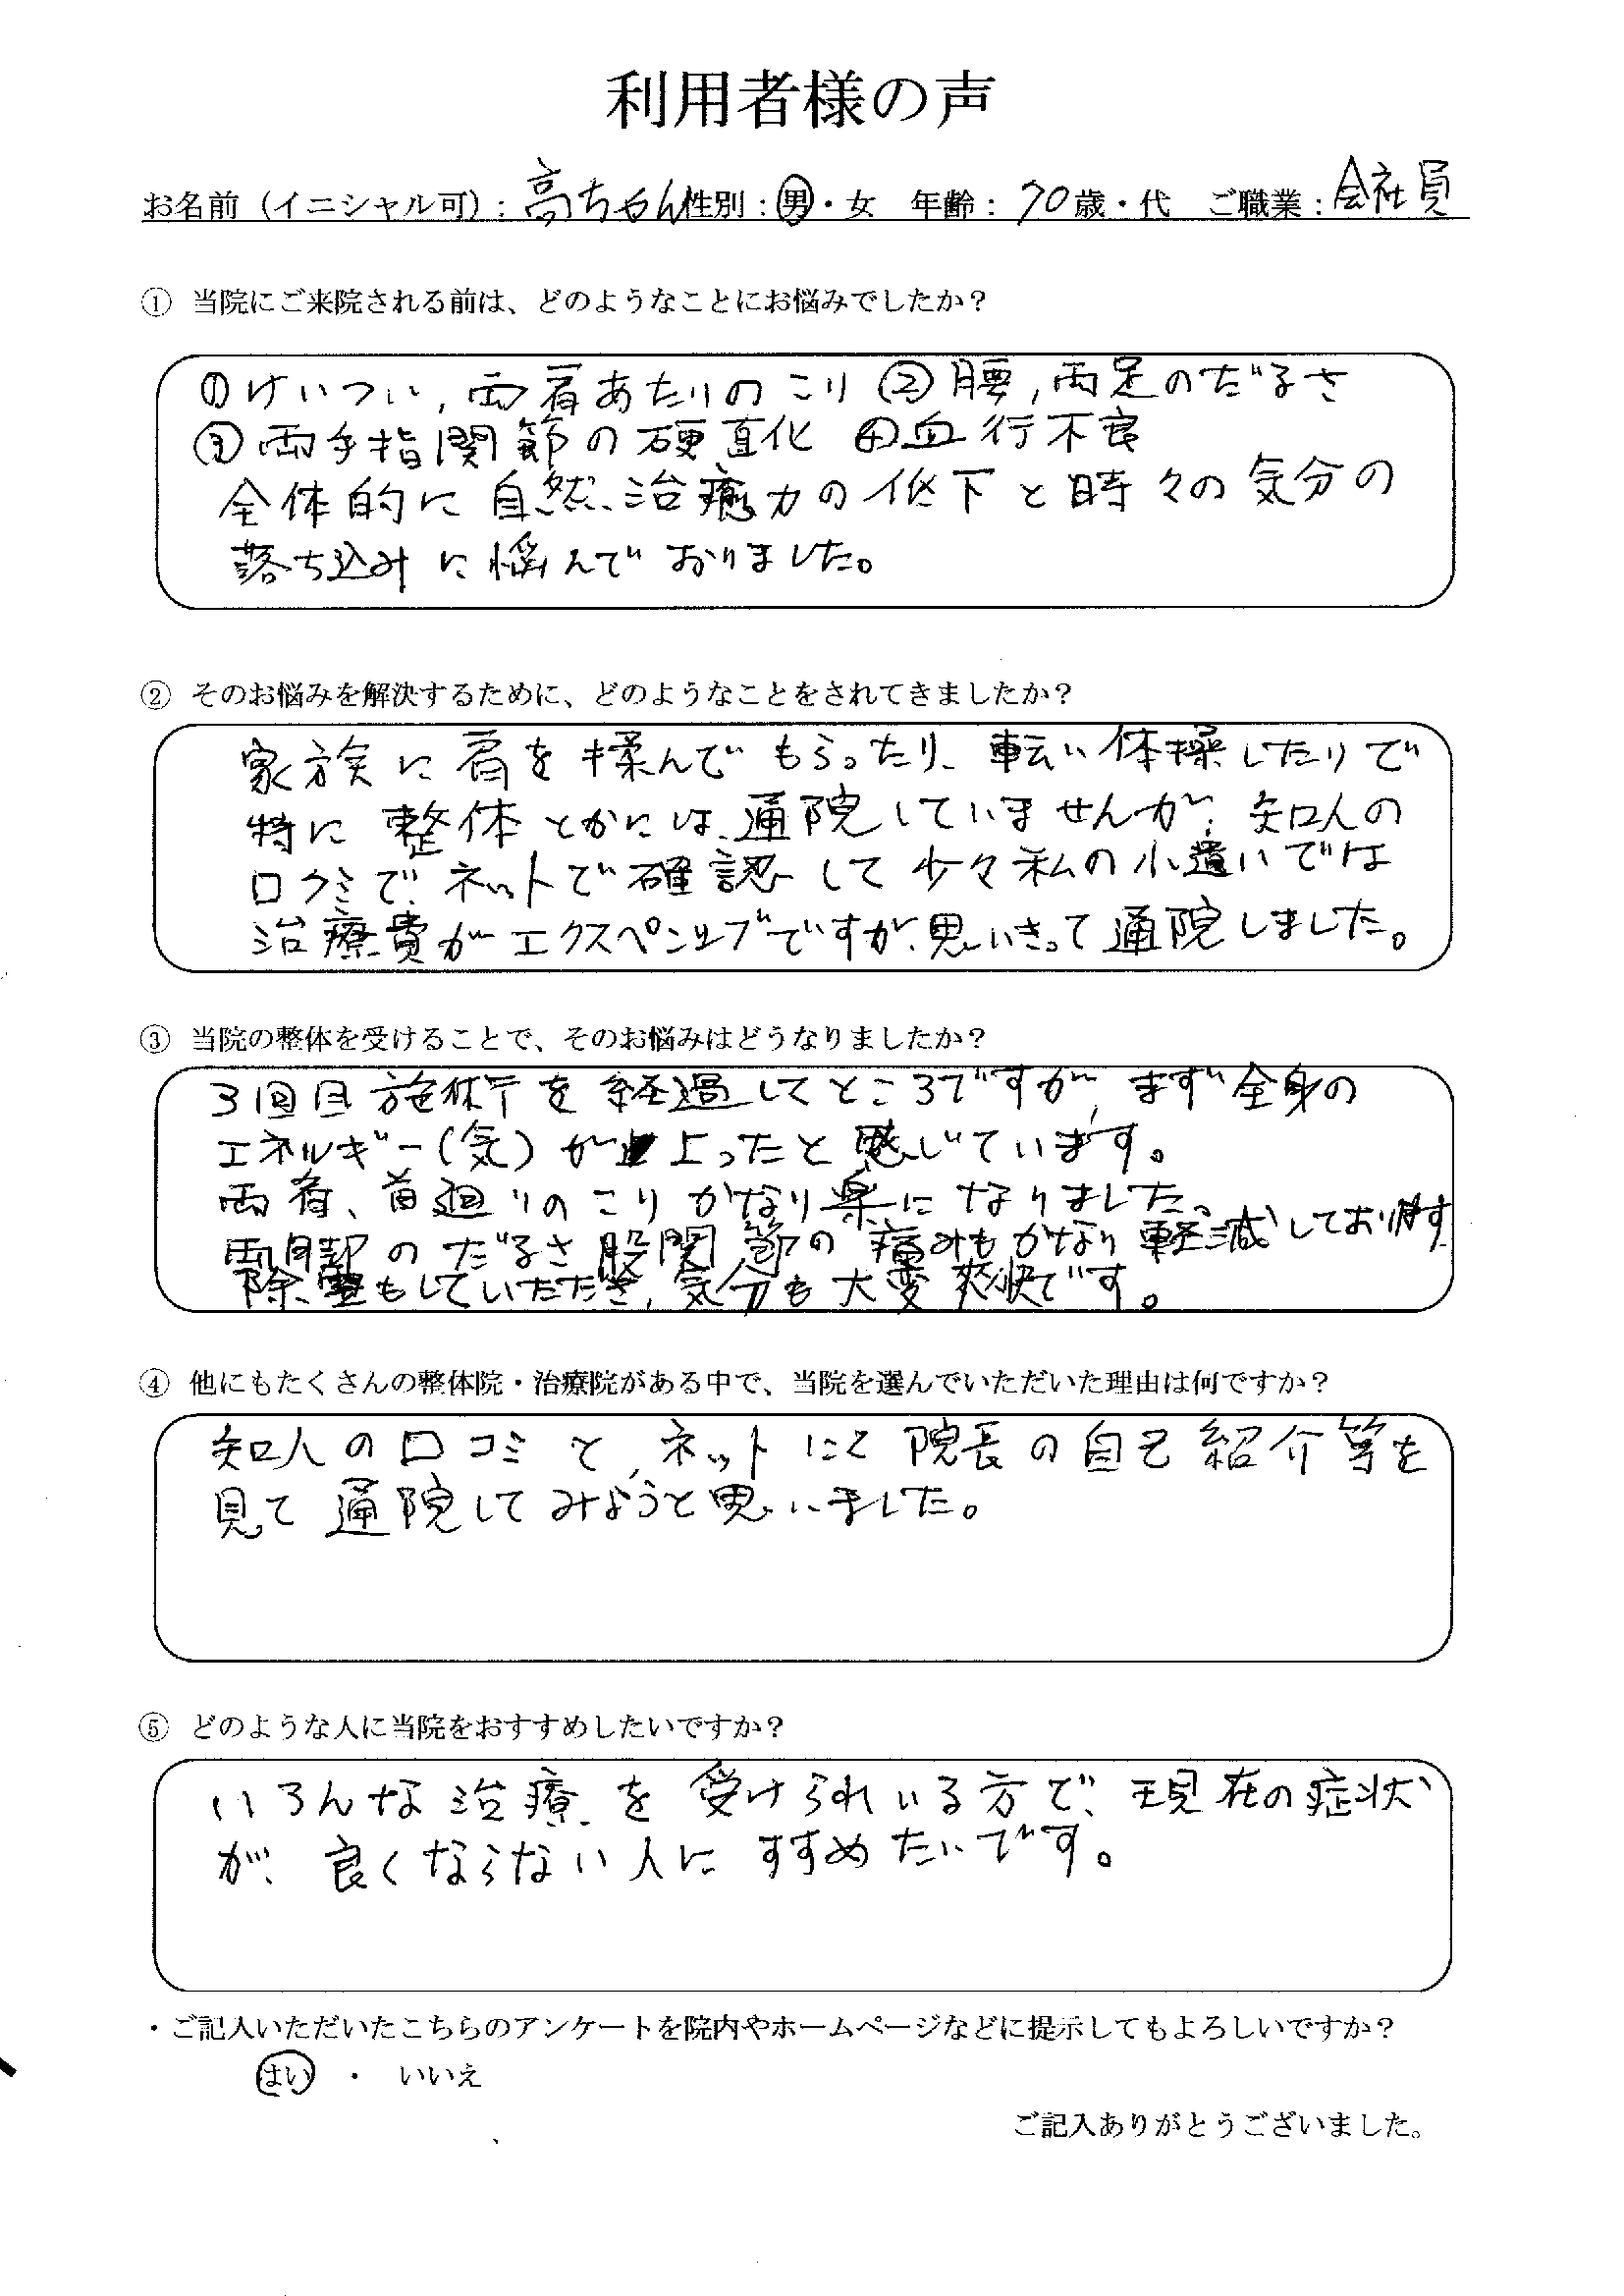 利用者様の声
お名前（イニシャル可）：高ちゃん 性別：男・女 年齢：70歳・代 ご職業：会社員
① 当院にご来院される前は、どのようなことにお悩みでしたか？
①けいつい，両肩あたりのこり ②腰，両足のだるさ
③両手指関節の硬直化 ④血行不良
全体的に自然治癒力の低下と時々の気分の
落ち込みに悩んでおりました。
② そのお悩みを解決するために、どのようなことをされてきましたか？
家族に肩を揉んでもらったり、転い体操したりで
特に整体とかには、通院していませんが、知人の
口クミで、ネットで確認して少々私の小遣いでは
治療費がエクスペンシブですが、思いきって通院しました。
③ 当院の整体を受けることで、そのお悩みはどうなりましたか？
3回目施術を経過してところですが，まず全身の
エネルギー（気）が上ったと感じています。
両肩、首廻りのこりかなり楽になりました、
両脚のだるさ股関節の痛みもかなり軽減しております
除霊もしていただき，気分も大変爽快です。
④ 他にもたくさんの整体院・治療院がある中で、当院を選んでいただいた理由は何ですか？
知人の口コミと，ネットにて院長の自己紹介等を
見て通院してみようと思いました。
⑤ どのような人に当院をおすすめしたいですか？
いろんな治療を受けられいる方で、現在の症状
が、良くならない人にすすめたいです。
・ご記入いただいたこちらのアンケートを院内やホームページなどに提示してもよろしいですか？
はい ・ いいえ
ご記入ありがとうございました。